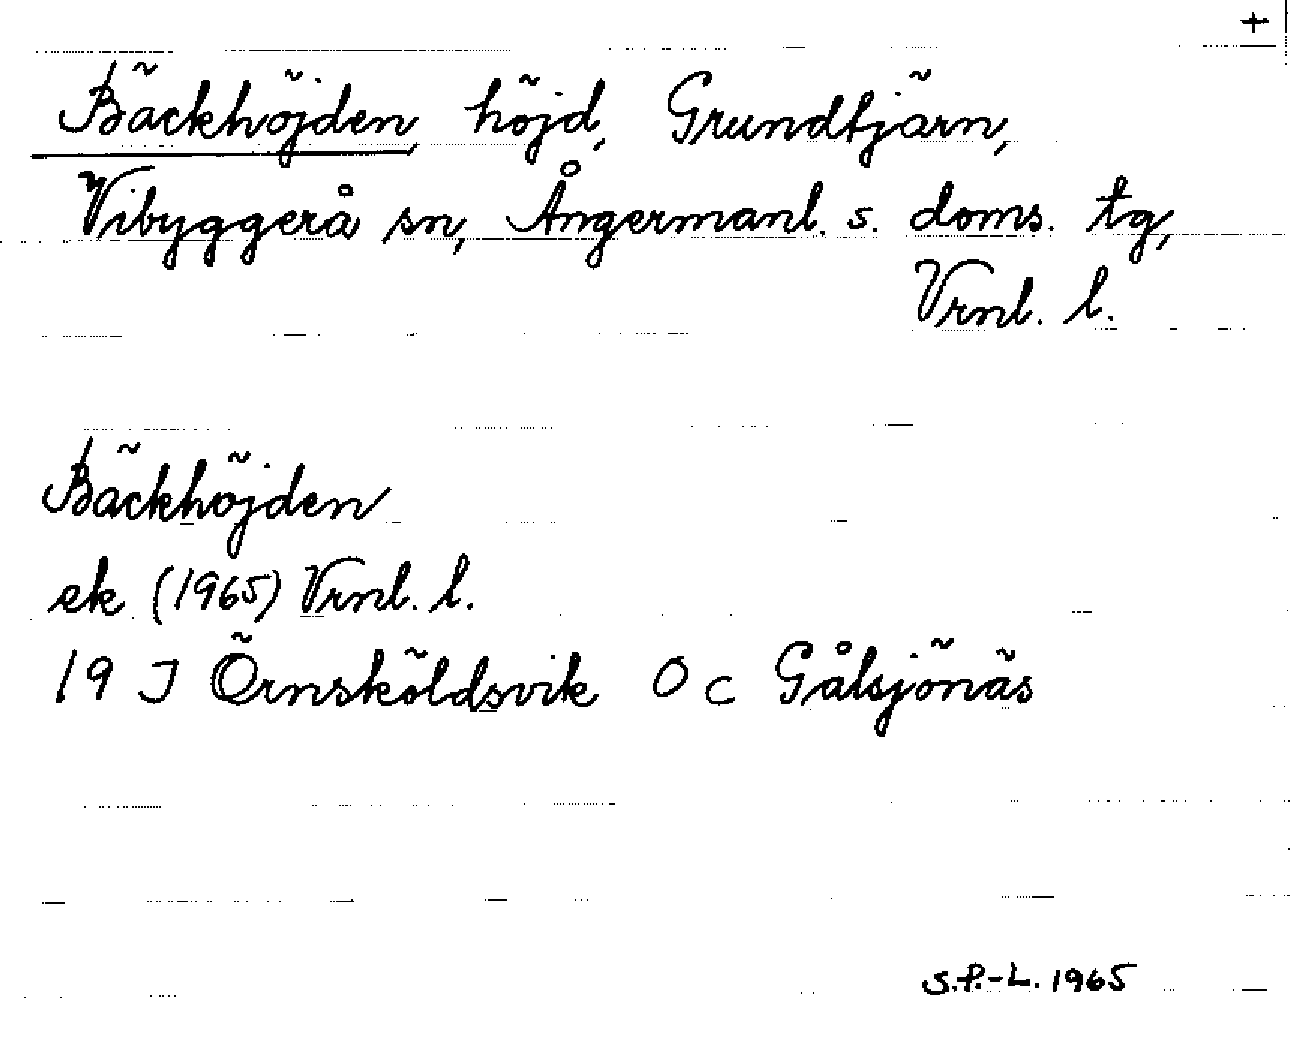 +
Bäckhöjden, höjd, Grundtjärn,
Vibyggerå sn, Ångermanl. s. doms. tg,
Vrnl. l.
Bäckhöjden
ek (1965) Vrnl. l.
19 J Örnsköldsvik O c Gålsjönäs
S.P.-L. 1965